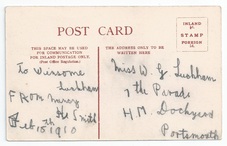 POST CARD
THIS SPACE MAY BE USED
FOR COMMUNICATION
FOR INLAND POSTAGE ONLY.
(Post Office Regulation)
THE ADDRESS ONLY TO BE
WRITTEN HERE
INLAND
½D.
STAMP
FOREIGN
1D.
To Winsome
Lusham
From
Smith
Feb 15 1910
Miss W G Lusham
The Parade
H.M. Dockyard
Portsmouth